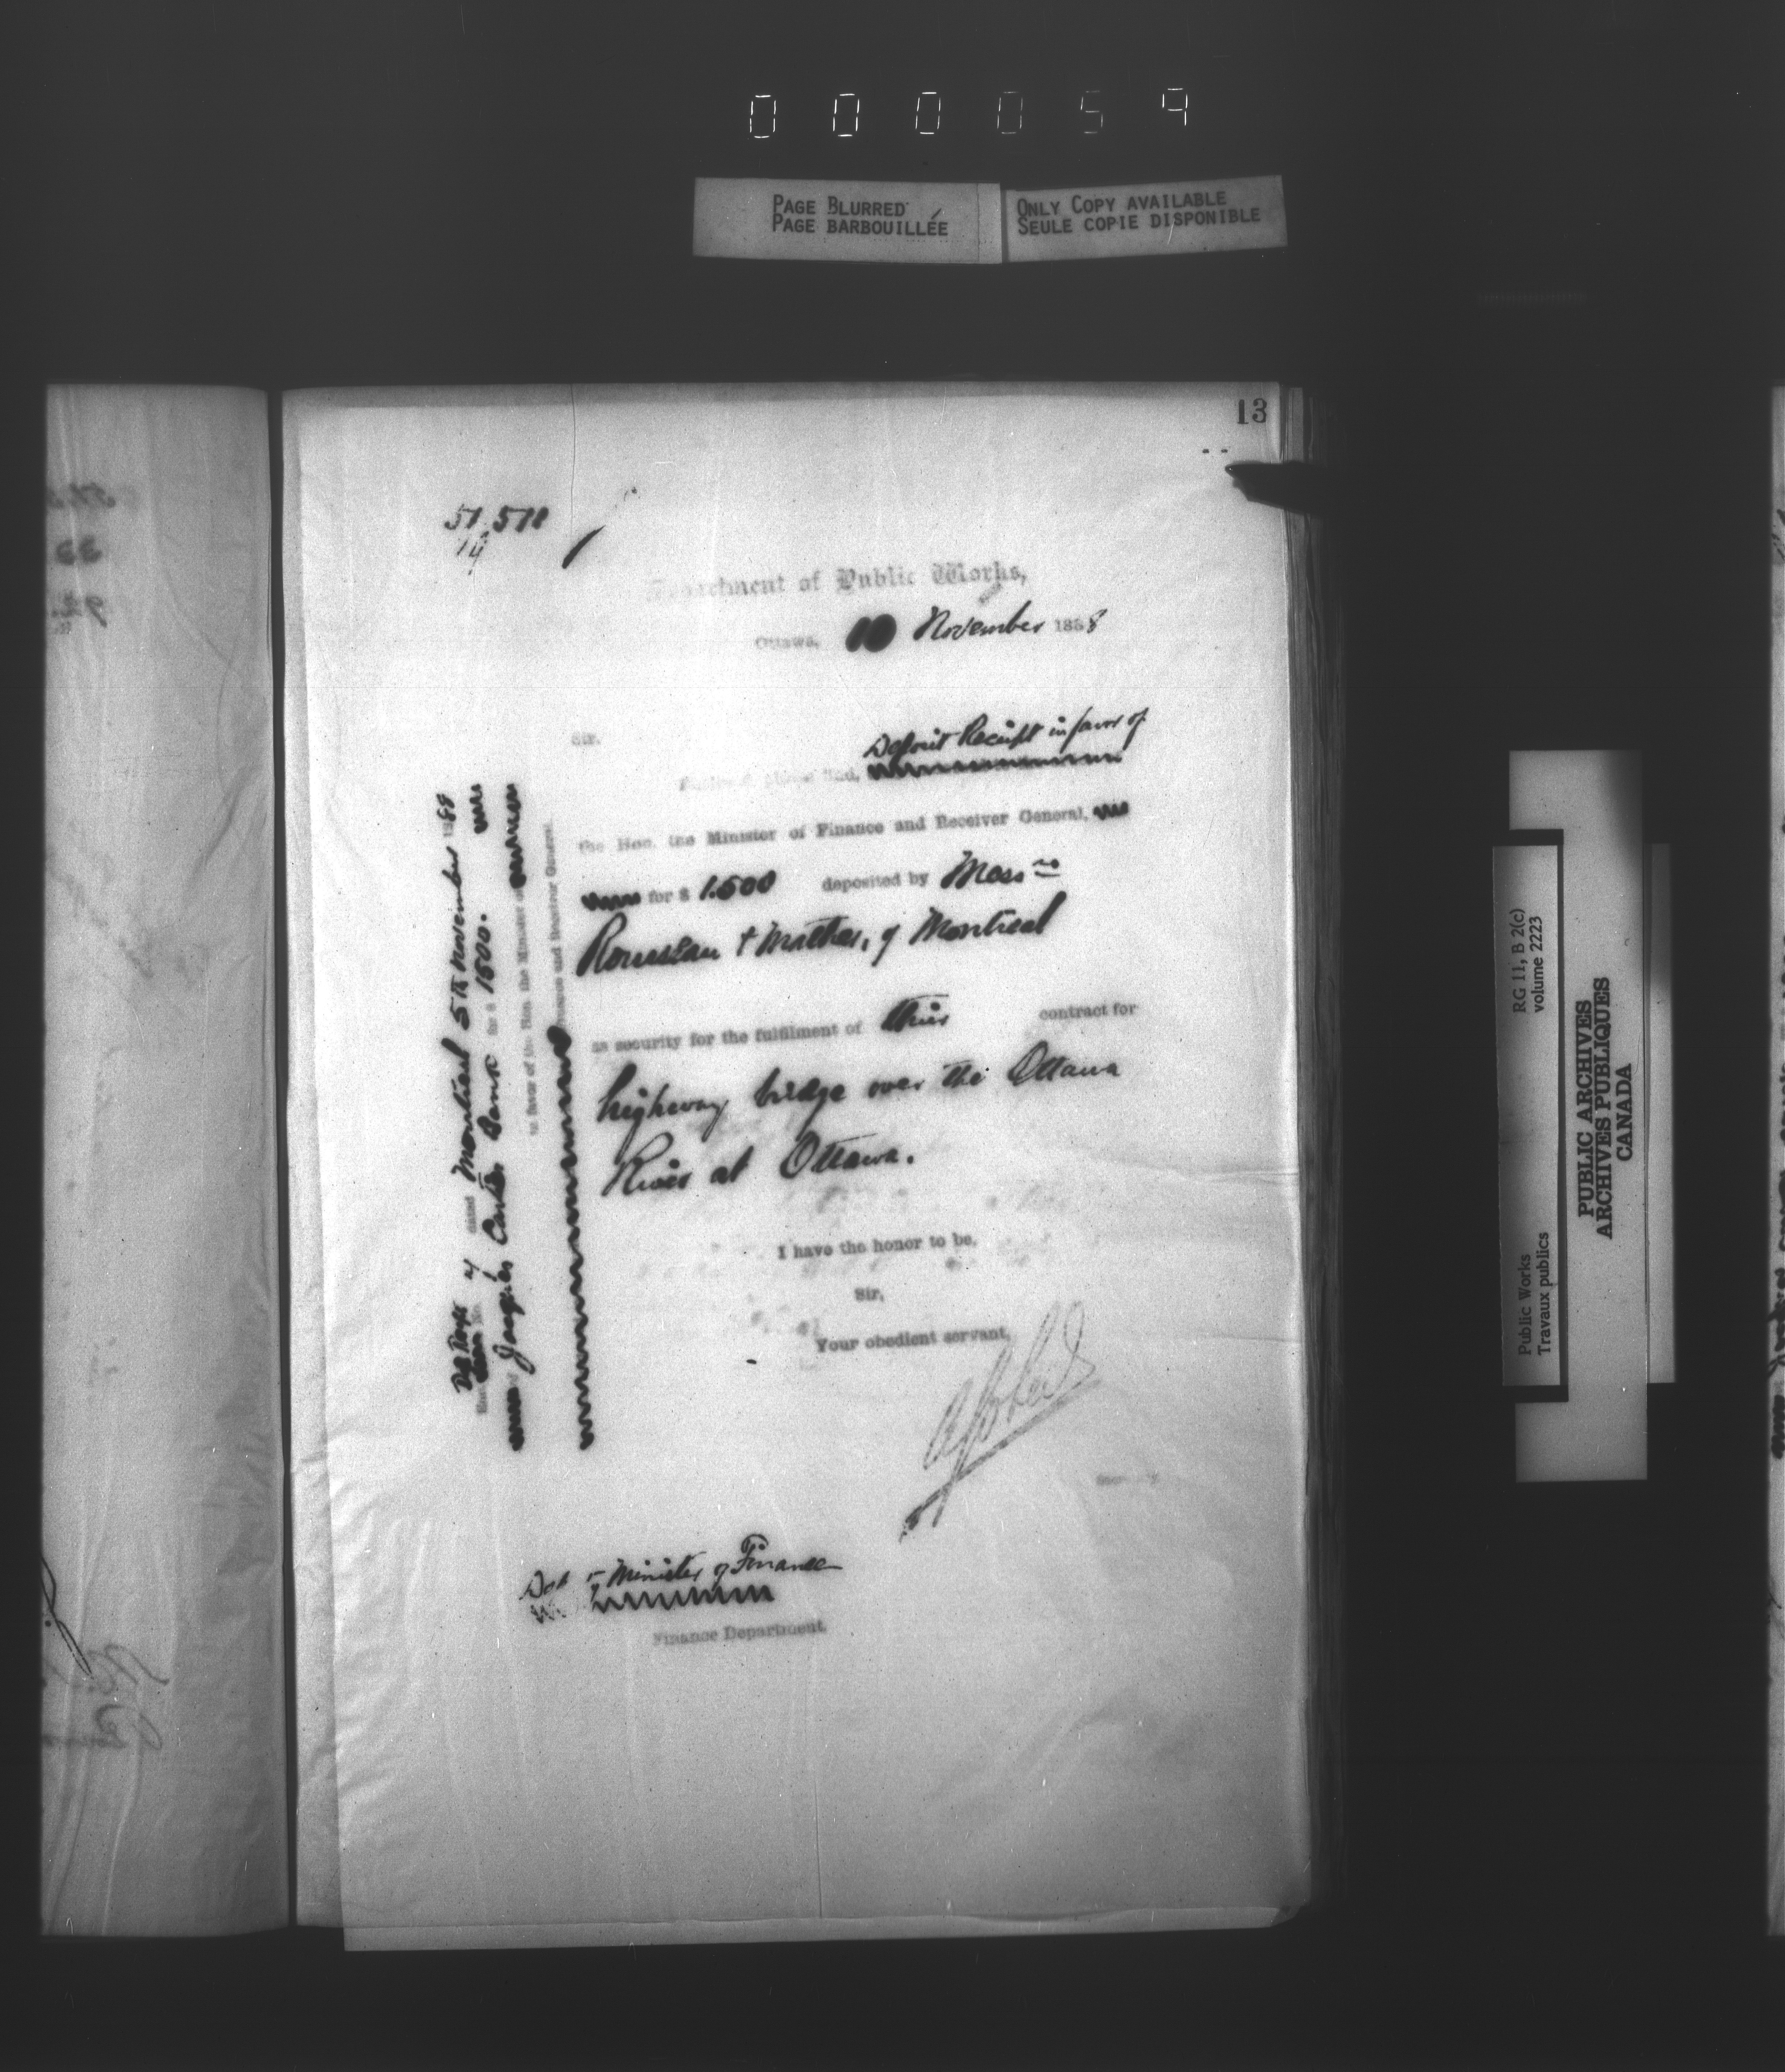 000059
PAGE BLURRED
PAGE BARBOUILLÉE
ONLY COPY AVAILABLE
SEULE COPIE DISPONIBLE
13
51,518
14
Department of Public Works,
Ottawa, 10 November 1888
Sir,
Deposit Receipt in favor of
the Hon. the Minister of Finance and Receiver General,
for $ 1.500 deposited by Messrs
Rousseau & Mather, of Montreal
as security for the fulfilment of their contract for
highway bridge over the Ottawa
River at Ottawa.
I have the honor to be,
Sir,
Your obedient servant,
Secretary
Dep y Minister of Finance
Finance Department.
Dep Rect of dated Montreal 5th November 1888
Jacques Cartier Bank for $ 1500.
in favor of the Hon. the Minister of
Finance and Receiver General.
Public Works
Travaux publics
RG 11, B 2(c)
volume 2223
PUBLIC ARCHIVES
ARCHIVES PUBLIQUES
CANADA